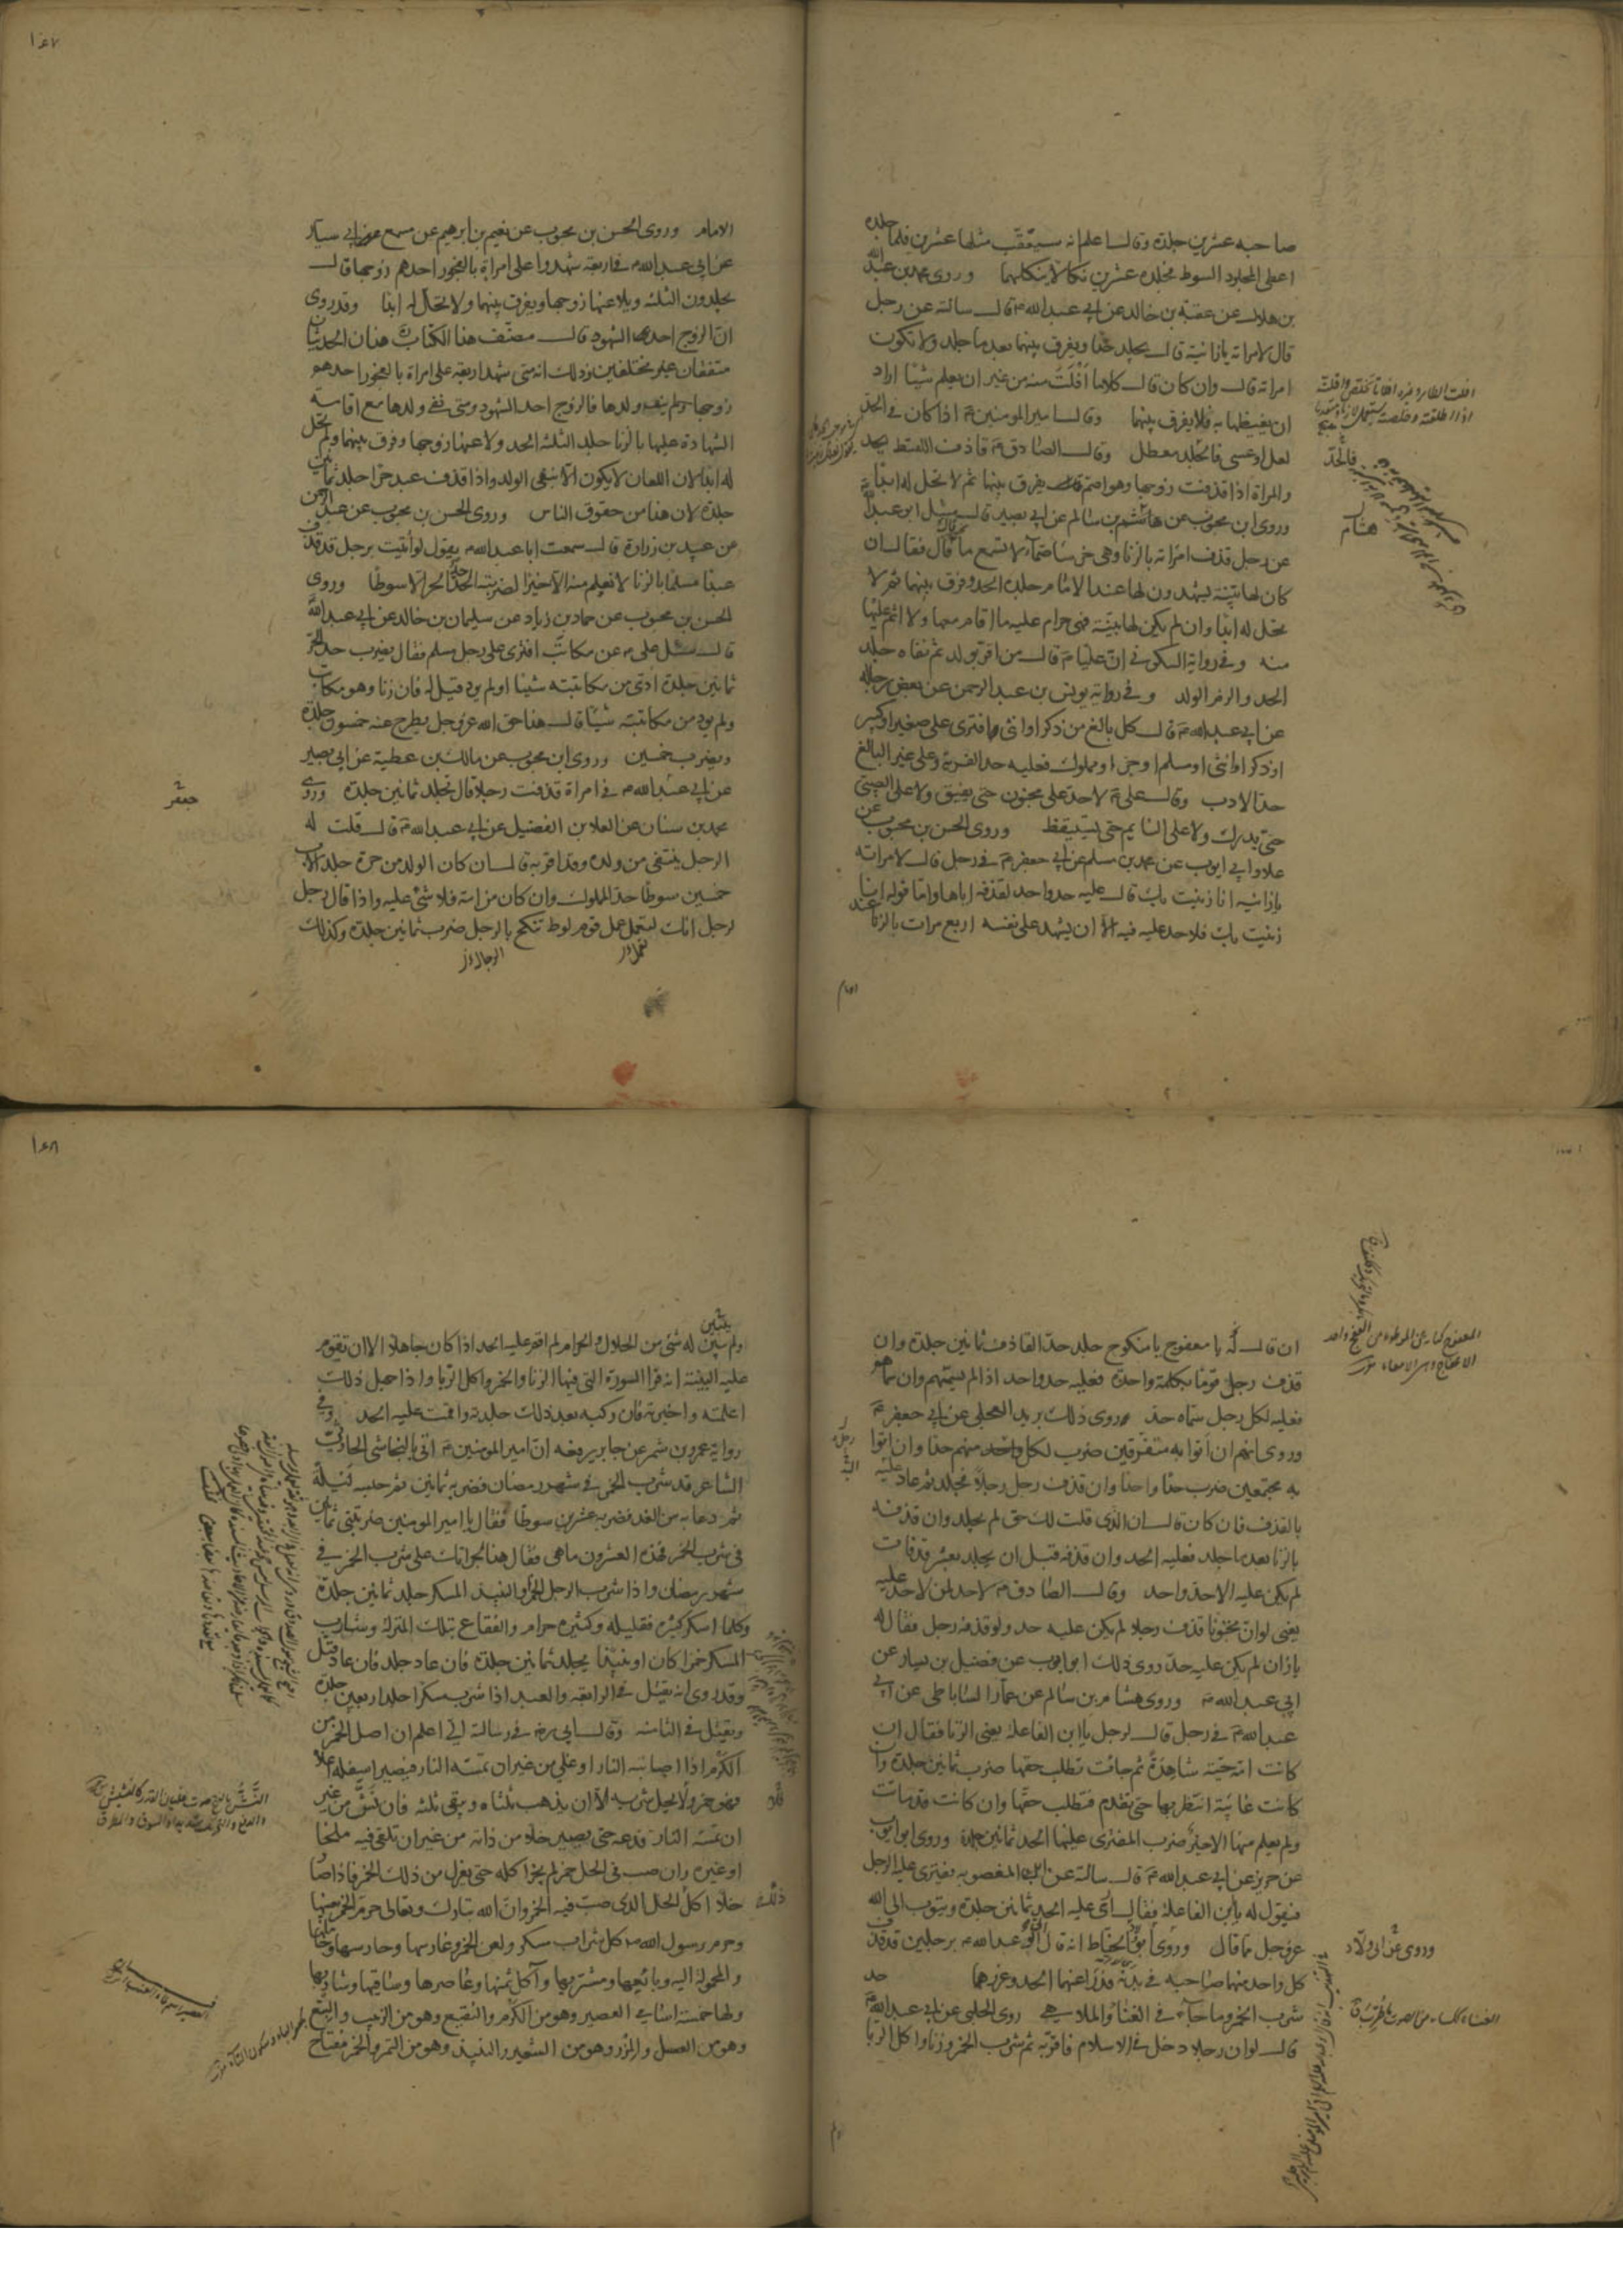 صاحبه عشرين جلدة وقال اعلم انه سيعقب مثلها عشرين فلما جلده
اعطى المجلود السوط فجلده عشرين نكالا ينكلهما وروى محمد بن عبد الله
بن هلال عن عقبة بن خالد عن ابي عبد الله م قال سالته عن رجل
قال لامراته يا زانية قال يجلد حدا ويفرق بينهما بعد ما جلد ولا تكون
امراته قال وان كان قال كلاما افلت منه من غير ان يعلم شيئا اراد
ان يغيظها به فلا يفرق بينهما وقال امير المومنين م اذا كان في الحد
لعل او عسى فالحد معطل وقال الصادق م قاذف اللقيط يحد
والمراة اذا قذفت زوجها وهو اصم يفرق بينها ثم لا تحل له ابدا
وروى ابن محبوب عن هاشم بن سالم عن ابي بصير قال سئل ابو عبد الله
عن رجل قذف امراته بالزنا وهي خرساء صماء لا تسمع ما قال فقال ان
كان لها بينة يشهدون لها عند الامام جلده الحد وفرق بينهما ثم لا
تحل له ابدا وان لم يكن لها بينة فهى حرام عليه ما اقام معها ولا اثم عليها
منه وفي رواية السكوني ان عليا م قال من اقر بولد ثم نفاه جلد
الحد والزم الولد وفي رواية يونس بن عبد الرحمن عن بعض رجاله
عن ابي عبد الله م قال كل بالغ من ذكر او انثى افترى على صغير او كبير
او ذكر او انثى او مسلم او حر او مملوك فعليه حد الفرية وعلى غير البالغ
حد الادب وقال على م لا حد على مجنون حتى يفيق ولا على الصبي
حتى يدرك ولا على النايم حتى يستيقظ وروى الحسن بن محبوب عن
علا وابي ايوب عن محمد بن مسلم عن ابي جعفر م في رجل قال لامراته
يا زانيه انا زنيت بك قال عليه حد واحد لقذفه اياها واما قوله انا
زنيت بك فلا حد عليه فيه الا ان يشهد على نفسه اربع مرات بالزنا عند
فالحد
هشام
الامام وروى الحسن بن محبوب عن نعيم بن ابرهيم عن مسمع عن ابي سيار
عن ابي عبد الله م في اربعة شهدوا على امراة بالفجور احدهم زوجها قال
يجلدون الثلثه ويلاعنها زوجها ويفرق بينهما ولا تحل له ابدا وقد روى
ان الزوج احد الشهود قال مصنف هذا الكتاب هذان الحديثان
متفقان غير مختلفين وذلك انه متى شهد اربعة على امراة بالفجور احدهم
زوجها ولم ينف ولدها فالزوج احد الشهود ومتى نفى ولدها مع اقامة
الشهادة عليها بالزنا جلد الثلثة الحد ولاعنها زوجها وفرق بينهما ولم تحل
له ابدا لان اللعان لا يكون الا بنفى الولد واذا قذف عبد حرا جلد ثمانين
جلدة لان هذا من حقوق الناس وروى الحسن بن محبوب عن عبد الرحمن
عن عبيد بن زرارة قال سمعت ابا عبد الله م يقول لو اتيت برجل قد قذف
عبدا مسلما بالزنا لا نعلم منه الا خيرا لضربته الحد حد الحر الا سوطا وروى
الحسن بن محبوب عن حماد بن زياد عن سليمان بن خالد عن ابي عبد الله
قال سئل على م عن مكاتب افترى على رجل مسلم فقال يضرب حد الحر
ثمانين جلدة ادى من مكاتبته شيئا او لم يود قيل له فان زنا وهو مكاتب
ولم يود من مكاتبته شيئا قال هذا حق الله عز وجل يطرح عنه خمسون جلدة
ويضرب خمسين وروى ابن محبوب عن مالك بن عطية عن ابي بصير
عن ابي عبد الله م في امراة قذفت رجلا قال تجلد ثمانين جلدة وروى
محمد بن سنان عن العلا بن الفضيل عن ابي عبد الله م قال قلت له
الرجل ينتفى من ولده وقد اقر به قال ان كان الولد من حرة جلد الاب
خمسين سوطا حد المملوك وان كان من امة فلا شئ عليه واذا قال رجل
لرجل انك لتعمل عمل قوم لوط تنكح الرجل ضرب ثمانين جلدة وكذلك
جعفر
ان قال له يا معفوج يا منكوح جلد حد القاذف ثمانين جلدة وان
قذف رجل قوما بكلمة واحدة فعليه حد واحد اذا لم يسمهم وان سماهم
فعليه لكل رجل سماه حد وروى ذلك بريد العجلي عن ابي جعفر م
وروى انهم ان اتوا به متفرقين ضرب لكل واحد منهم حدا وان اتوا
به مجتمعين ضرب حدا واحدا وان قذف رجل رجلا فجلد ثم عاد عليه
بالقذف فان كان قال ان الذى قلت لك حق لم يجلد وان قذفه
بالزنا بعد ما جلد فعليه الحد وان قذفه قبل ان يجلد بعشر قذفات
لم يكن عليه الا حد واحد وقال الصادق م لا حد لمن لا حد عليه
يعنى لو ان مجنونا قذف رجلا لم يكن عليه حد ولو قذفه رجل فقال له
يا زان لم يكن عليه حد روى ذلك ابو ايوب عن فضيل بن يسار عن
ابي عبد الله م وروى هشام بن سالم عن عمار الساباطى عن ابي
عبد الله م في رجل قال لرجل يا ابن الفاعلة يعنى الزنا فقال ان
كانت امه حية شاهدة ثم جائت تطلب حقها ضرب ثمانين جلدة وان
كانت غائبة انتظر بها حتى تقدم فتطلب حقها وان كانت قد ماتت
ولم يعلم منها الا خير ضرب المفترى عليها الحد ثمانين جلدة وروى ابو ايوب
عن حريز عن ابي عبد الله م قال سالته عن ابن المغصوبه يفترى عليه الرجل
فيقول له يا ابن الفاعلة فقال ارى عليه الحد ثمانين جلدة ويتوب الى الله
عز وجل مما قال وروى ابو الحناط انه قال ابو عبد الله م برجلين قد قذف
كل واحد منهما صاحبه في بدنه فدرا عنهما الحد وعزرهما حد
شرب الخمر وما جاء في الغناء والملاهي روى الحلبي عن ابي عبد الله م
قال لو ان رجلا دخل في الاسلام فاقر به ثم شرب الخمر وزنا واكل الربا
يتبين
ولم يتبين له شئ من الحلال والحرام لم اقم عليه الحد اذا كان جاهلا الا ان تقوم
عليه البينة انه قرا السورة التي فيها الزنا والخمر واكل الربا واذا جهل ذلك
اعلمته واخبرته فان ركبه بعد ذلك جلدته واقمت عليه الحد وفي
رواية عمرو بن شمر عن جابر يرفعه ان امير المومنين م اتى بالنجاشى الحارثى
الشاعر قد شرب الخمر في شهر رمضان فضربه ثمانين ثم حبسه ليلة
ثم دعا به من الغد فضربه عشرين سوطا فقال يا امير المومنين ضربتنى ثمانين
في شرب الخمر فهذه العشرون ما هى فقال هذا لجراتك على شرب الخمر في
شهر رمضان واذا شرب الرجل الخمر او النبيذ المسكر جلد ثمانين جلدة
وكلما اسكر كثيره فقليله وكثيره حرام والفقاع بتلك المنزلة وشارب
المسكر خمرا كان او نبيذا يجلد ثمانين جلدة فان عاد جلد فان عاد قتل
وقد روى انه يقتل في الرابعه والعبد اذا شرب مسكرا جلد اربعين جلدة
ويقتل في الثامنه وقال ابي رض في رسالته الى اعلم ان اصل الخمر من
الكرم اذا اصابته النار او غلى من غير ان تمسه النار فيصير اسفله اعلاه
فهو خمر ولا يحل شربه الا ان يذهب ثلثاه ويبقى ثلثه فان نش من غير
ان تمسه النار فدعه حتى يصير خلا من ذاته من غير ان تلقى فيه ملحا
او غيره وان صب في الخل خمر لم يجز اكله حتى يعزل من ذلك الخمر فاذا صار
خلا اكل الخل الذى صب فيه الخمر وان الله تبارك وتعالى حرم الخمر بعينها
وحرم رسول الله كل شراب مسكر ولعن الخمر وغارسها وحارسها وحاملها
والمحمولة اليه وبايعها ومشتريها واكل ثمنها وعاصرها وساقيها وشاربها
ولها خمسة اسامي العصير وهو من الكرم والنقيع وهو من الزبيب والبتع
وهو من العسل والمزر وهو من الشعير والنبيذ وهو من التمر والخمر مفتاح